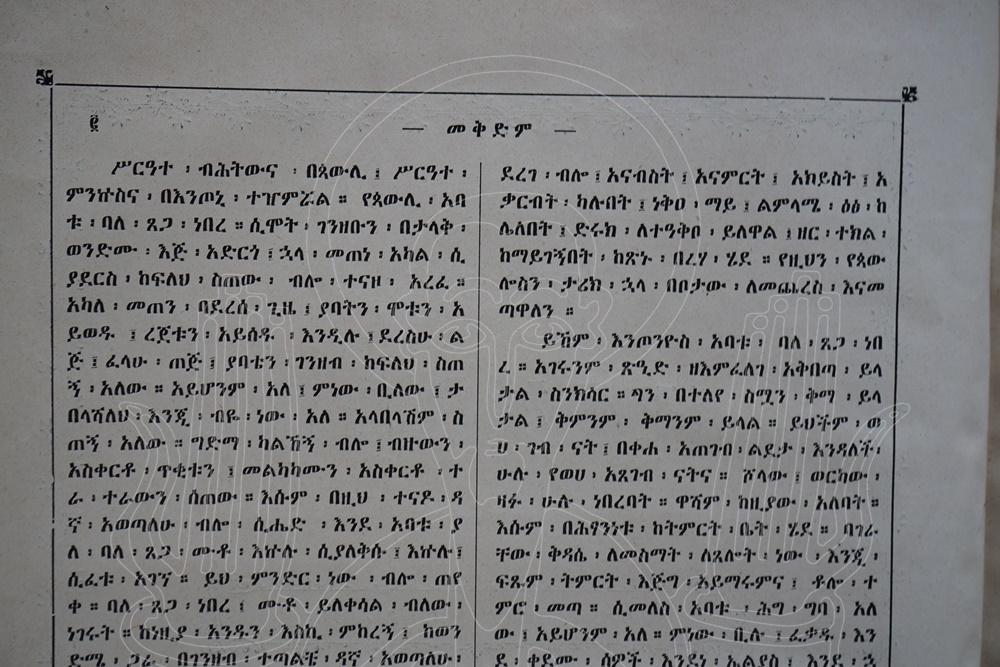 ፪
— መቅድም —
ሥርዓተ ፡ ብሕትውና ፡ በጳውሊ ፤ ሥርዓተ ፡
ምንኵስና ፡ በእንጦኒ ፡ ተዠምሯል ። የጳውሊ ፡ አባ
ቱ ፡ ባለ ፡ ጸጋ ፡ ነበረ ። ሲሞት ፡ ገንዘቡን ፡ በታላቅ ፡
ወንድሙ ፡ እጅ ፡ አድርጎ ፤ ኋላ ፡ መጠነ ፡ አካል ፡ ሲ
ያደርስ ፡ ከፍለህ ፡ ስጠው ፡ ብሎ ፡ ተናዞ ፡ አረፈ ።
አካለ ፡ መጠን ፡ ባደረሰ ፡ ጊዜ ፤ ያባትን ፡ ሞቱን ፡ አ
ይወዱ ፤ ረጀቱን ፡ አይሰዱ ፡ እንዲሉ ፤ ደረስሁ ፡ ል
ጅ ፤ ፈላሁ ፡ ጠጅ ፤ ያባቴን ፡ ገንዘብ ፡ ከፍለህ ፡ ስጠ
ኝ ፡ አለው ። አይሆንም ፡ አለ ፤ ምነው ፡ ቢለው ፤ ታ
በላሽለህ ፡ እንጂ ፡ ብዬ ፡ ነው ፡ አለ ። አላበላሽም ፡ ስ
ጠኝ ፡ አለው ። ግድማ ፡ ካልኸኝ ፡ ብሎ ፤ ብዙውን ፡
አስቀርቶ ፡ ጥቂቱን ፤ መልካካሙን ፡ አስቀርቶ ፡ ተ
ራ ፡ ተራውን ፡ ሰጠው ። እሱም ፡ በዚህ ፡ ተናዶ ፡ ዳ
ኛ ፡ አወጣለሁ ፡ ብሎ ፡ ሲሔድ ፡ እንደ ፡ አባቱ ፡ ያ
ለ ፡ ባለ ፡ ጸጋ ፡ ሙቶ ፡ እኵሉ ፡ ሲያለቅሱ ፤ እኵሉ ፤
ሲፈቱ ፡ አገኘ ። ይህ ፡ ምንድር ፡ ነው ፡ ብሎ ፡ ጠየ
ቀ ። ባለ ፡ ጸጋ ፡ ነበረ ፤ ሙቶ ፡ ይለቀሳል ፡ ብለው ፡
ነገሩት ። ከነዚያ ፡ አንዱን ፡ እስኪ ፡ ምከረኝ ፤ ከወን
ድሜ ፡ ጋራ ፡ በገንዘብ ፡ ተጣልቼ ፡ ዳኛ ፡ አወጣለሁ ፡
ደረገ ፡ ብሎ ፤ አናብስት ፤ አናምርት ፤ አክይስት ፤ አ
ቃርብት ፡ ካሉበት ፤ ነቅዐ ፡ ማይ ፤ ልምላሜ ፡ ዕፅ ፡ ከ
ሌለበት ፤ ድሩክ ፡ ለተዓቅቦ ፡ ይለዋል ፤ ዘር ፡ ተክል ፡
ከማይገኝበት ፡ ከጽኑ ፡ በረሃ ፡ ሄደ ። የዚህን ፡ የጳው
ሎስን ፡ ታሪክ ፡ ኋላ ፡ በቦታው ፡ ለመጨረስ ፡ እናመ
ጣዋለን ።
ይኸም ፡ እንጦንዮስ ፡ አባቱ ፡ ባለ ፡ ጸጋ ፡ ነበ
ረ ። አገሩንም ፡ ጽዒድ ፡ ዘእምፈለገ ፡ አቅበጣ ፡ ይላ
ታል ፡ ስንክሳር ። ጫን ፡ በተለየ ፡ ስሟን ፡ ቅማ ፡ ይላ
ታል ፤ ቅምንም ፡ ቅማንም ፡ ይላል ። ይህችም ፡ ወ
ሀ ፡ ገብ ፡ ናት ፤ በቀሐ ፡ አጠገብ ፡ ልደታ ፡ እንዳለች ፡
ሁሉ ፡ የወሀ ፡ አጸገብ ፡ ናትና ። ሾላው ፤ ወርካው ፡
ዛፉ ፡ ሁሉ ፡ ነበረባት ። ዋሻም ፡ ከዚያው ፡ አለባት ።
እሱም ፡ በሕፃንነቱ ፡ ከትምርት ፡ ቤት ፡ ሄደ ። ባገራ
ቸው ፡ ቅዳሴ ፡ ለመስማት ፡ ለጸሎት ፡ ነው ፡ እንጂ ፡
ፍጹም ፡ ትምርት ፡ እጅግ ፡ አይማሩምና ፤ ቶሎ ፡ ተ
ምሮ ፡ መጣ ። ሲመለስ ፡ አባቱ ፡ ሕግ ፡ ግባ ፡ አለ
ው ፤ አይሆንም ፡ አለ ። ምነው ፡ ቢሉ ፤ ፈቃዱ ፡ እን
ደ ፡ ቀደሙ ፡ ሰዎች ፡ እንደነ ፡ ኤልያስ ፡ እንደ ፡ ኋ